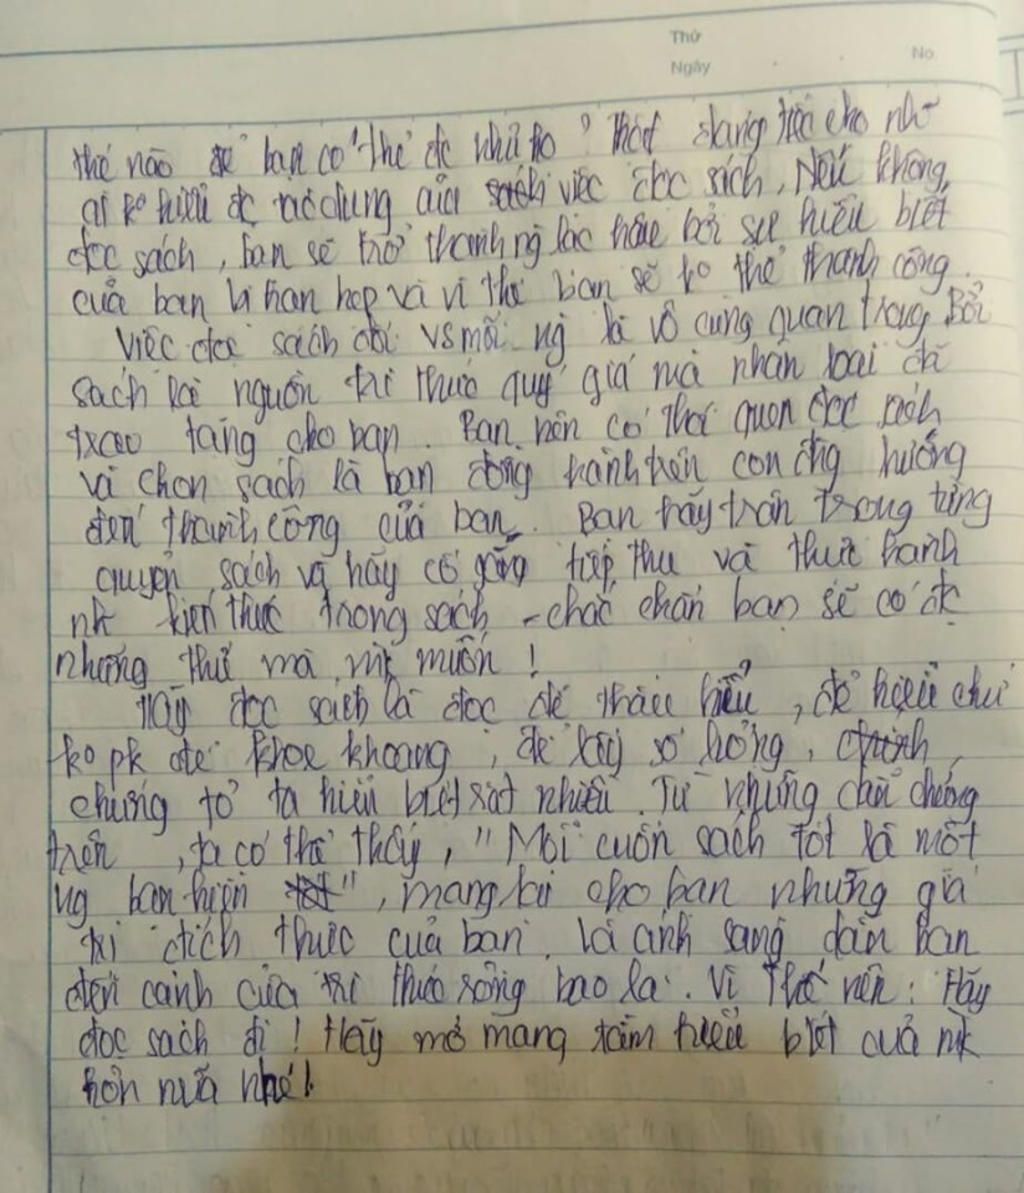 Thứ
Ngày
No
thế nào để bạn có thể đc như họ? Thật đáng trách cho nh~
ai ko hiểu đc tác dụng của việc đọc sách. Nếu không
đọc sách, bạn sẽ trở thành ng lạc hậu bởi sự hiểu biết
của bạn bị hạn hẹp và vì thế bạn sẽ ko thể thành công.
Việc đọc sách đối vs mỗi ng là vô cùng quan trọng. Bởi
sách là nguồn tri thức quý giá mà nhân loại đã
trao tặng cho bạn. Bạn nên có thói quen đọc sách
và chọn sách là bạn đồng hành trên con đg hướng
đến thành công của bạn. Bạn hãy trân trọng từng
quyển sách và hãy cố gắng tiếp thu và thực hành
nh kiến thức trong sách, chắc chắn bạn sẽ có đc
những thứ mà mk muốn!
Hãy đọc sách là đọc để thấu hiểu, để hiểu chứ
ko pk để khoe khoang, để lấy số lượng,
chứng tỏ ta hiểu biết rất nhiều. Từ những dẫn chứng
trên, ta có thể thấy, "Mỗi cuốn sách tốt là một
ng bạn hiền", mang lại cho bạn những giá
trị đích thực của bạn. Là ánh sáng dẫn bạn
đến cánh cửa tri thức rộng bao la. Vì thế nên: Hãy
đọc sách đi! Hãy mở mang tầm hiểu biết của mk
hơn nữa nhé!